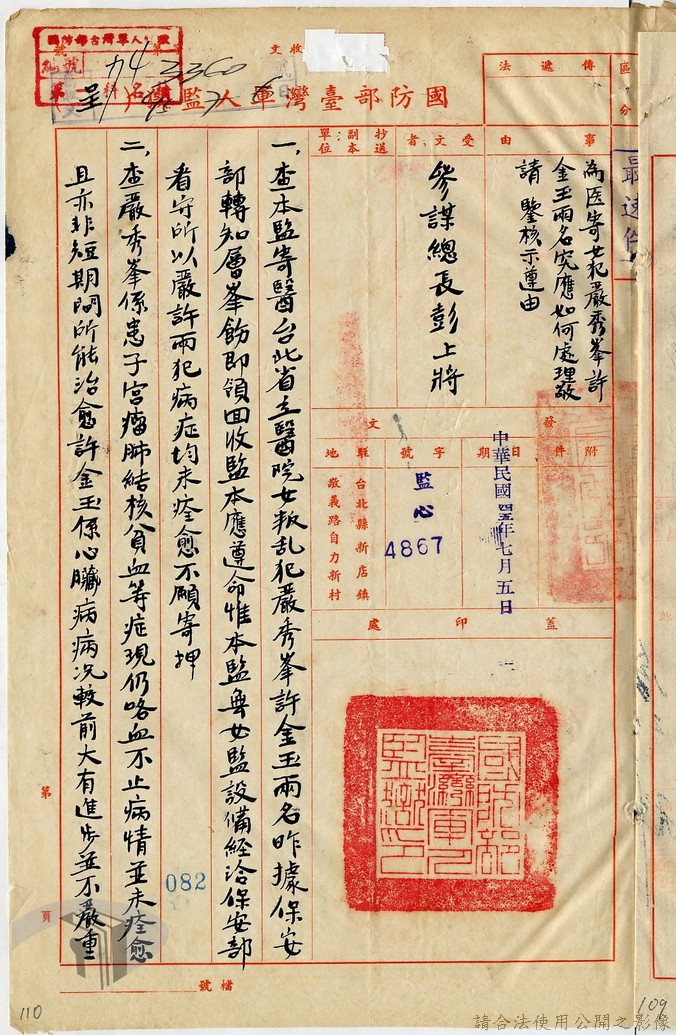 國防部臺灣軍人監獄
呈
最速件
區分
傳遞法
事由
為医寄女犯嚴秀峯許
金玉兩名究應如何處理敬
請 鑒核示遵由
受文者
參謀總長彭上將
抄送副本單位
發文
附件
日期
中華民國四五年七月五日
字號
監心
4867
駐地
台北縣新店鎮
敬義路自力新村
蓋印處
國防部臺灣軍人監獄印
一、查本監寄醫台北省立醫院女叛乱犯嚴秀峯許金玉兩名昨據保安
部轉知層峯飭即領回收監本應遵命惟本監無女監設備經洽保安部
看守所以嚴許兩犯病症均未痊愈不願寄押
二、查嚴秀峯係患子宮瘤肺結核貧血等症現仍咯血不止病情並未痊愈
且亦非短期間所能治愈許金玉係心臟病病況較前大有進步並不嚴重
082
第
頁
檔號
110
109
請合法使用公開之影像